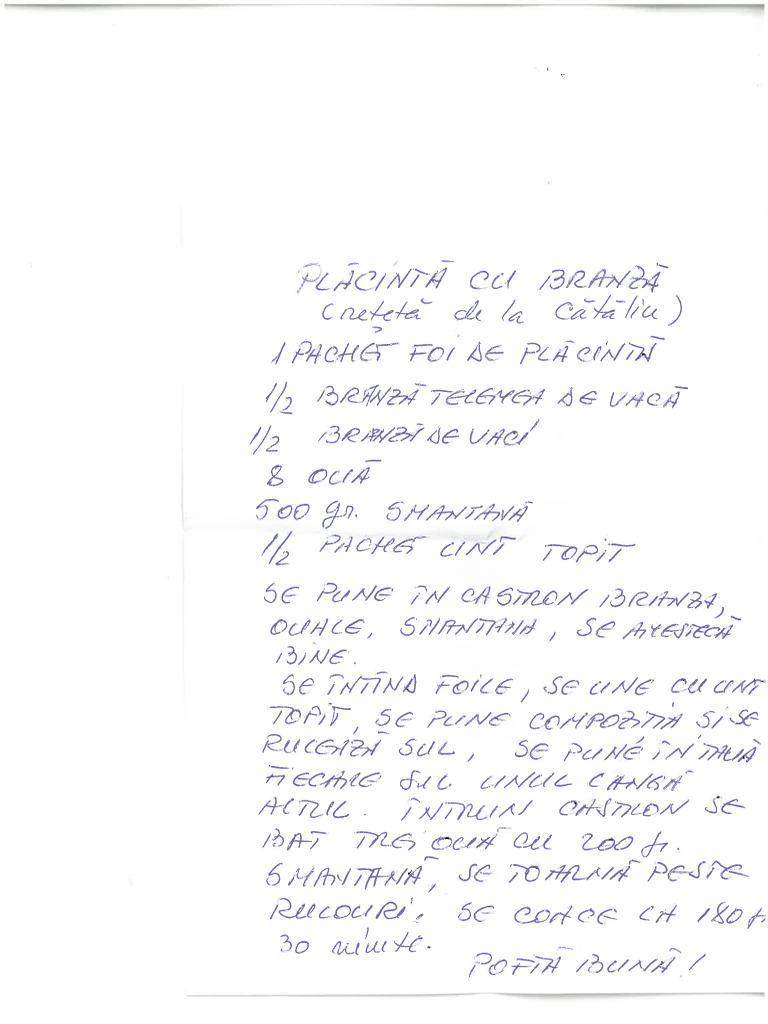 PLĂCINTĂ CU BRANZĂ
(rețetă de la Cătălin)
1 PACHET FOI DE PLĂCINTĂ
1/2 BRÂNZĂ TELEMEA DE VACĂ
1/2 BRANZĂ DE VACI
8 OUĂ
500 gr. SMANTANĂ
1/2 PACHET UNT TOPIT
SE PUNE ÎN CASTRON BRANZA,
OUALE, SMANTANA, SE AMESTECĂ
BINE.
SE ÎNTIND FOILE, SE UNE CU UNT
TOPIT, SE PUNE COMPOZITIA SI SE
RULEAZĂ SUL, SE PUNE ÎN TAVĂ
FIECARE SUL UNUL LANGĂ
ALTUL. ÎNTRUN CASTRON SE
BAT TREI OUĂ CU 200 gr.
SMANTANĂ, SE TOARNĂ PESTE
RULOURI. SE COACE LA 180 gr
30 minute.
POFTĂ BUNĂ!